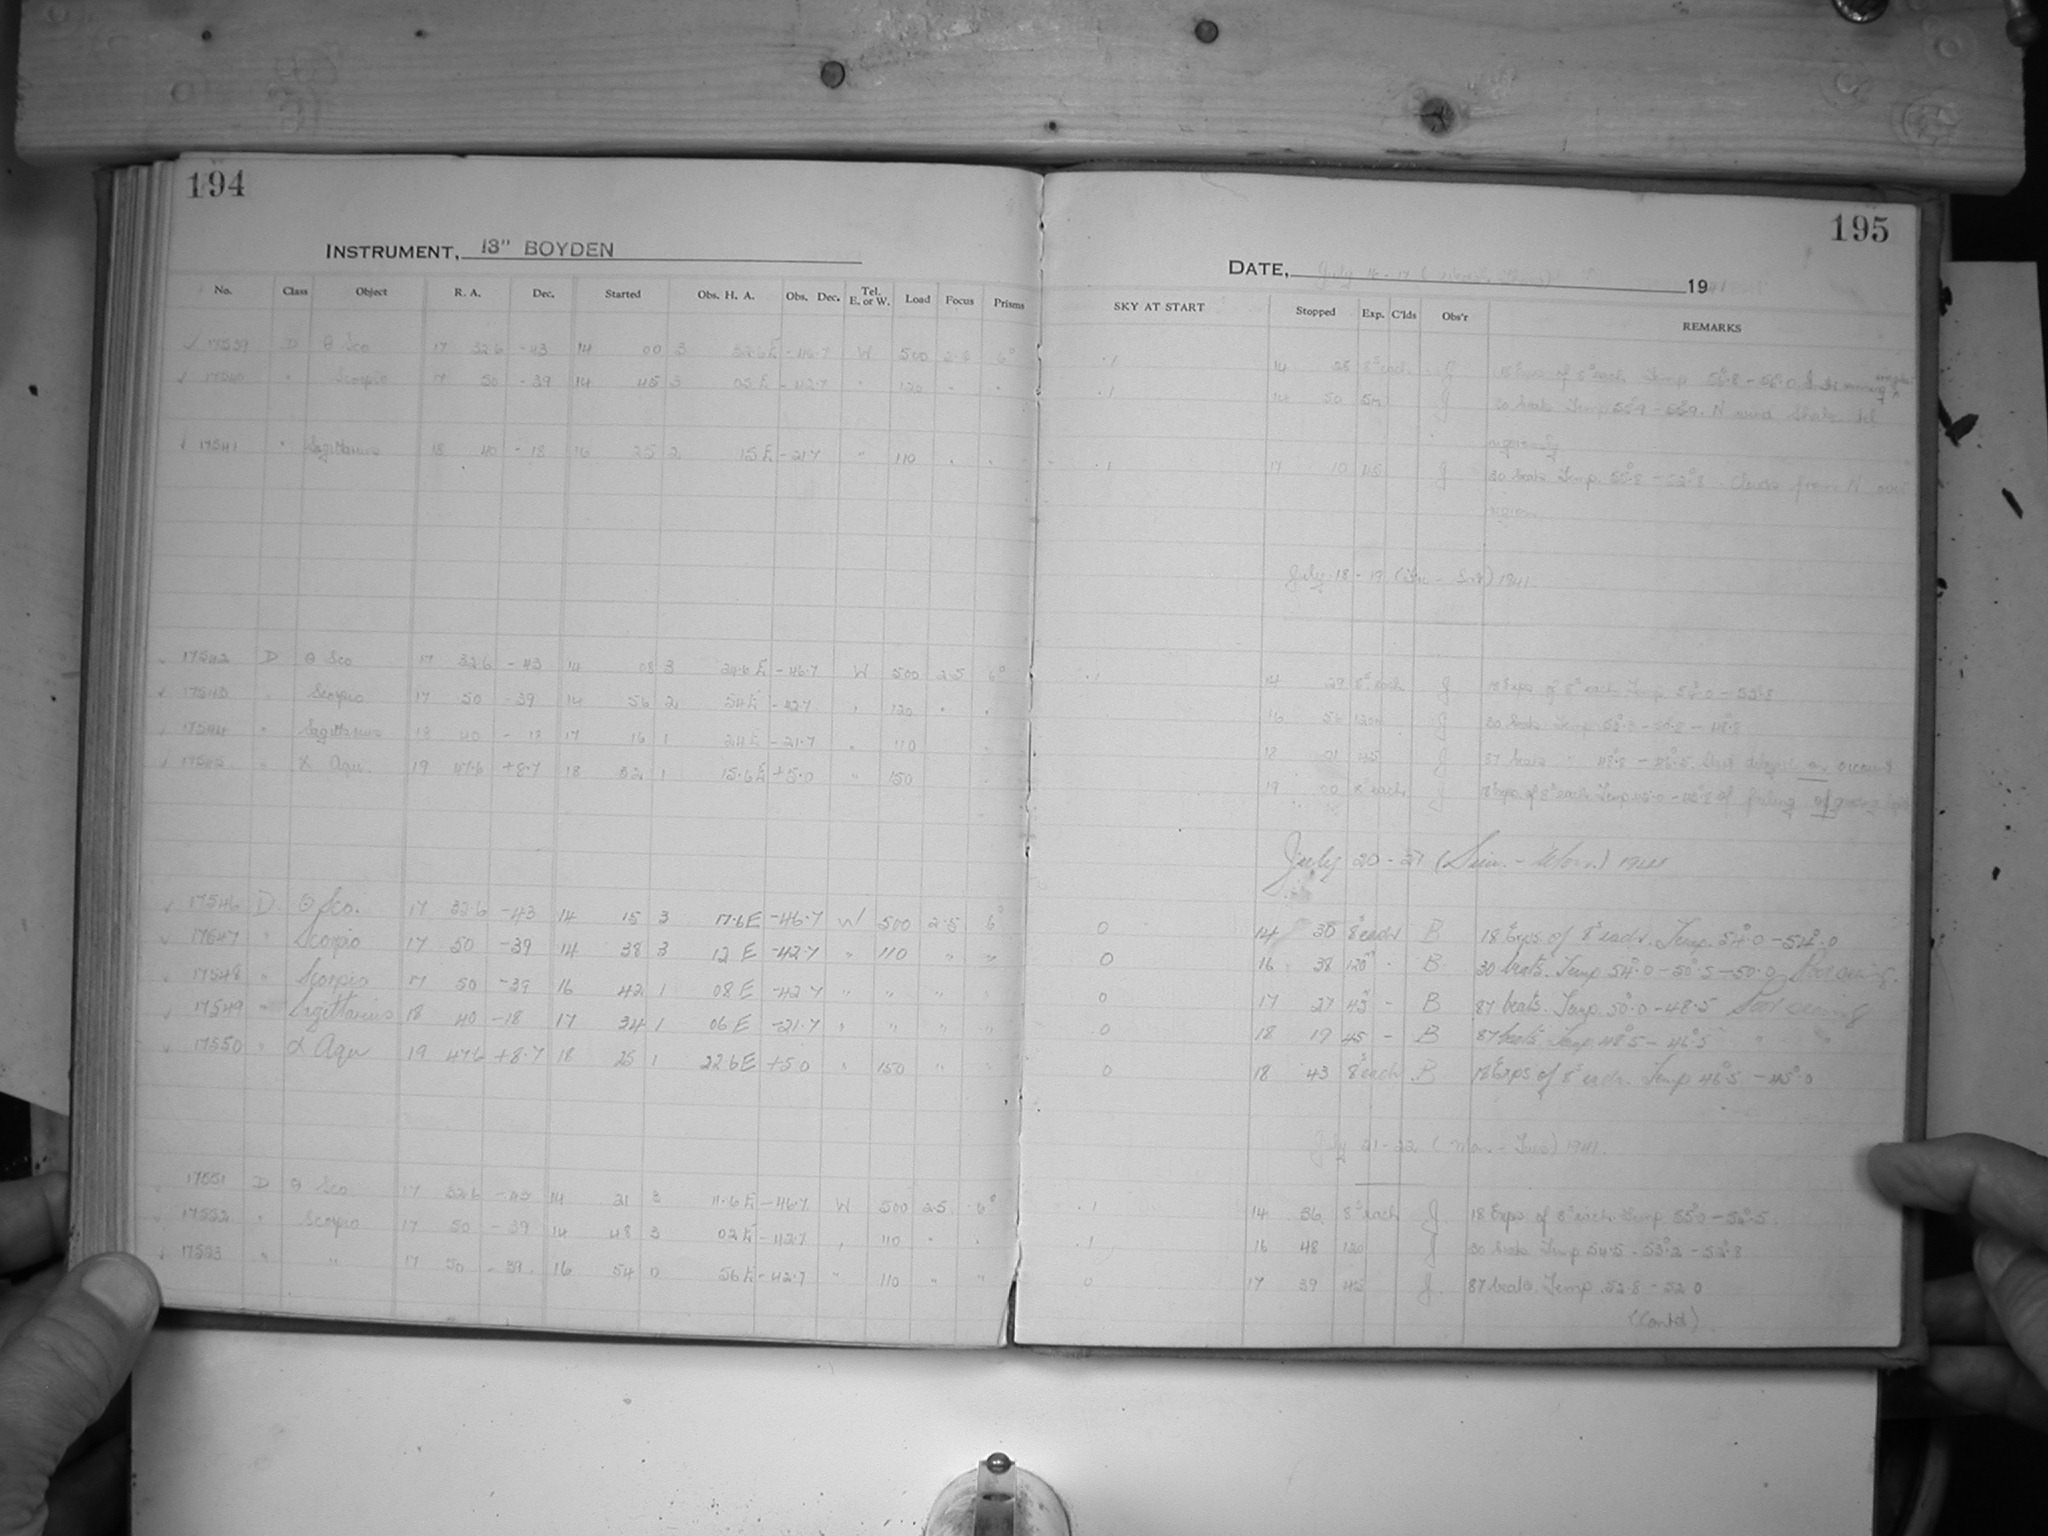 194
INSTRUMENT, 13" BOYDEN
No. Class Object R. A. Dec. Started Obs. H. A. Obs. Dec. Tel. E. or W. Load Focus Prisms
17539 D θ Sco 17 32.6 -43 14 00 3 32.6 E -46.7 W 500 6°
17540 " Scorpio 17 50 -39 14 45 3 05 E -42.7 " 120 " "
17541 " Sagittarius 18 40 -18 16 25 2 15 E -21.7 " 110 " "
17542 D θ Sco 17 32.6 -43 14 08 3 24.6 E -46.7 W 500 2.5 6°
17543 " Scorpio 17 50 -39 14 56 2 54 E -42.7 " 120 " "
17544 " Sagittarius 18 40 -18 17 16 1 24 E -21.7 " 110
17545 " α Aqu. 19 47.6 +8.7 18 32 1 15.6 E +5.0 " 150
17546 D θ Sco. 17 32.6 -43 14 15 3 17.6 E -46.7 W 500 2.5 6°
17547 " Scorpio 17 50 -39 14 38 3 12 E -42.7 " 110 " "
17548 " Scorpio 17 50 -39 16 42 1 08 E -42.7 " " " "
17549 " Sagittarius 18 40 -18 17 34 1 06 E -21.7 " " " "
17550 " α Aqu 19 47.6 +8.7 18 25 1 22.6 E +5.0 " 150 " "
17551 D θ Sco 17 32.6 -43 14 21 3 11.6 E -46.7 W 500 2.5 6°
17552 " Scorpio 17 50 -39 14 48 3 02 E -42.7 " 110 " "
17553 " " 17 50 -39 16 54 0 56 E -42.7 " 110 " "
195
DATE, July 16-17 19 41
SKY AT START Stopped Exp. C'lds Obs'r REMARKS
.1 14 28 8s each J 18 Exps of 8s each Temp
.1 14 50 5m J 30 beats Temp 55.9 - 55.9. N wind shakes tel
vigorously
.1 17 10 45 J 30 beats Temp. 55.8 - 52.8. Clouds from N over
region
July 18-19 (Fri - Sat) 1941
.1 14 29 8s each J 18 Exps of 8s each Temp
16 56 120m J 30 beats Temp
18 01 45 J 87 beats " on account
19 00 8s each J 18 Exps of 8s each Temp of failing of
July 20-21 (Sun. - Mon.) 1941
0 14 30 8s each B 18 Exps. of 8s each. Temp. 54°.0 - 54°.0
0 16 38 120m - B 30 beats. Temp 54°.0 - 50°.5 - 50.0 Poor seeing.
0 17 27 45m - B 87 beats. Temp. 50°.0 - 48.5 Poor seeing
0 18 19 45 - B 87 beats. Temp. 48°.5 - 46°.5 " "
0 18 43 8s each B 18 Exps of 8s each. Temp 46°.5 - 45°.0
July 21-22 (Mon. - Tues) 1941.
.1 14 36 8s each J. 18 Exps of 8s each Temp 55°.0 - 54°.5
.1 16 48 120 J 30 beats Temp 54.5 - 53°.2 - 52°.8
0 17 39 45 J. 87 beats. Temp. 52.8 - 52.0
(Contd)